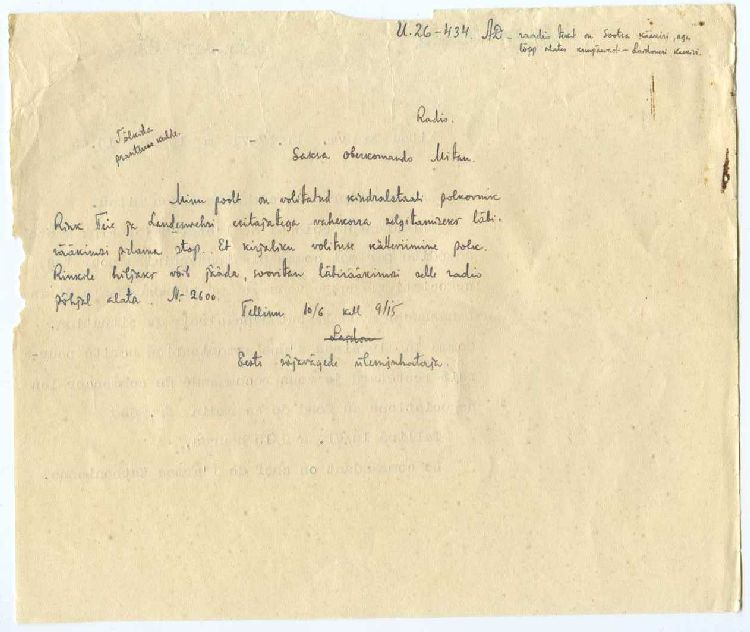 U. 26-434. AD - raadio tekst on Sootsa käekiri, aga
lõpp alates - Laidoneri käekiri.
Radio.
Tõlkida
prantsuse kelde.
Saksa oberkomando Mitau.
Minu poolt on volitatud kindralstaabi polkovnik
Rink Teie ja Landeswehri esitajatega vahekorra selgitamiseks läbi-
rääkimisi pidama stop. Et kirjaliku volituse kätteviimine polk.
Rinkile hiljaks võib jääda, soovitan läbirääkimisi selle radio
põhjal alata. Nr 2600.
Tellinn 10/6 kell 9/15
Eesti sõjavägede ülemjuhataja